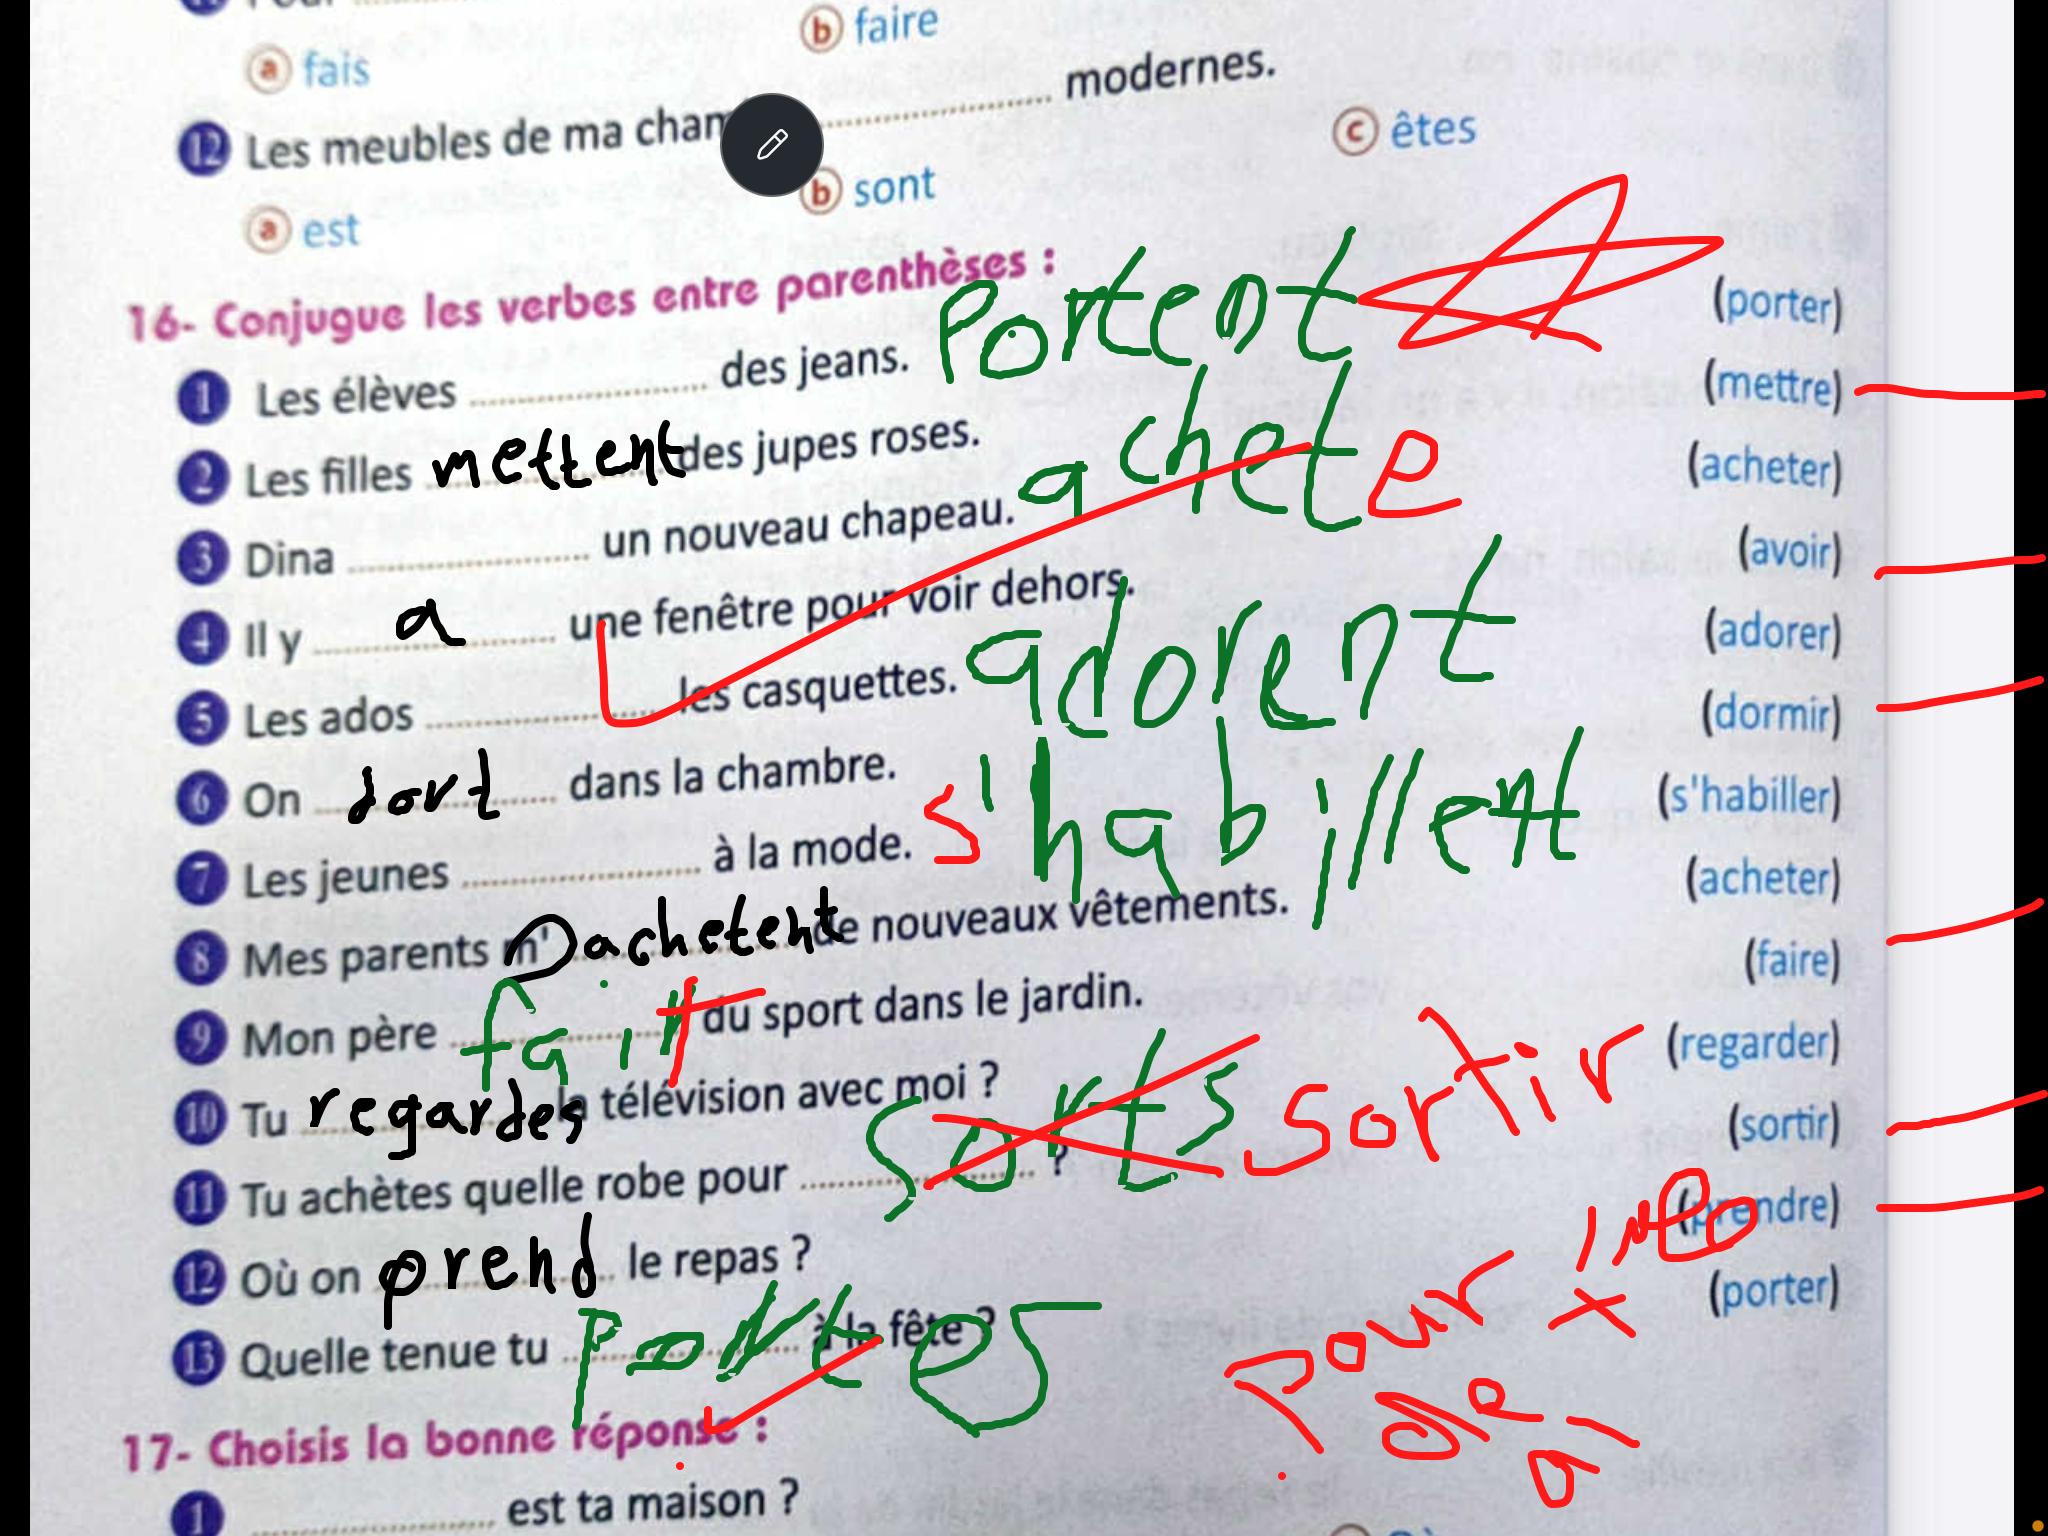 a fais b faire
12 Les meubles de ma cham .................... modernes.
a est b sont c êtes
16- Conjugue les verbes entre parenthèses :
1 Les élèves .................... des jeans. Portent (porter)
2 Les filles mettent des jupes roses. (mettre)
3 Dina .................... un nouveau chapeau. achete (acheter)
4 Il y a une fenêtre pour voir dehors. (avoir)
5 Les ados .................... les casquettes. adorent (adorer)
6 On dort dans la chambre. (dormir)
7 Les jeunes .................... à la mode. s'habillent (s'habiller)
8 Mes parents m' achetent de nouveaux vêtements. (acheter)
9 Mon père fait du sport dans le jardin. (faire)
10 Tu regardes la télévision avec moi ? (regarder)
11 Tu achètes quelle robe pour .................... ? sorts sortir (sortir)
12 Où on prend le repas ? (prendre)
13 Quelle tenue tu portes à la fête ? (porter)
Pour
de
à
17- Choisis la bonne réponse :
1 .................... est ta maison ?